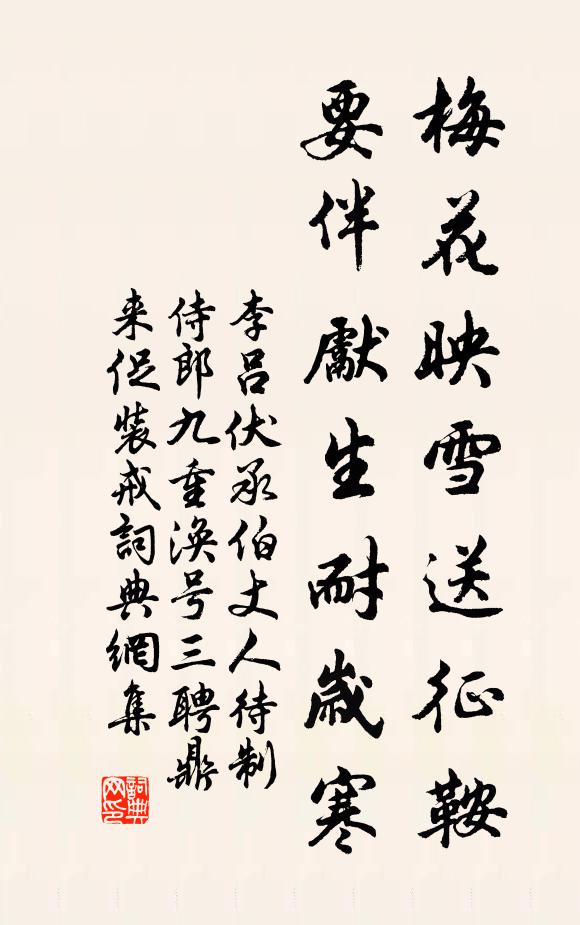 梅花映雪送征鞍
要伴獻生耐歲寒
李呂伏承伯丈人待制
侍郎九重渙号三聘鼎
来促裝戒詞典網集
詞典网印